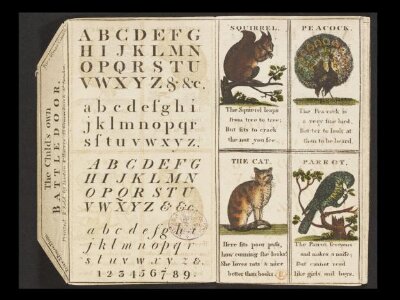 The Child's own
BATTLEDOOR.
ABCDEFG
HIJKLMN
OPQRSTU
VWXYZ&&c.
abcdefghi
jklmnopqr
sſtuvwxyz.
ABCDEFG
HIJKLMN
OPQRSTU
VWXYZ &c.
abcdefghi
jklmnopqr
sſtuvwxyz.
123456789.
SQUIRREL.
The Squirrel leaps
from tree to tree;
But sits to crack
the nut you see.
PEACOCK.
The Peacock is
a very fine bird,
Better to look at
than to be heard.
THE CAT.
Here sits poor puss,
how cunning she looks!
She loves rats & mice
better than books.
PARROT.
The Parrot
and makes a noise;
But cannot read
like girls and boys.